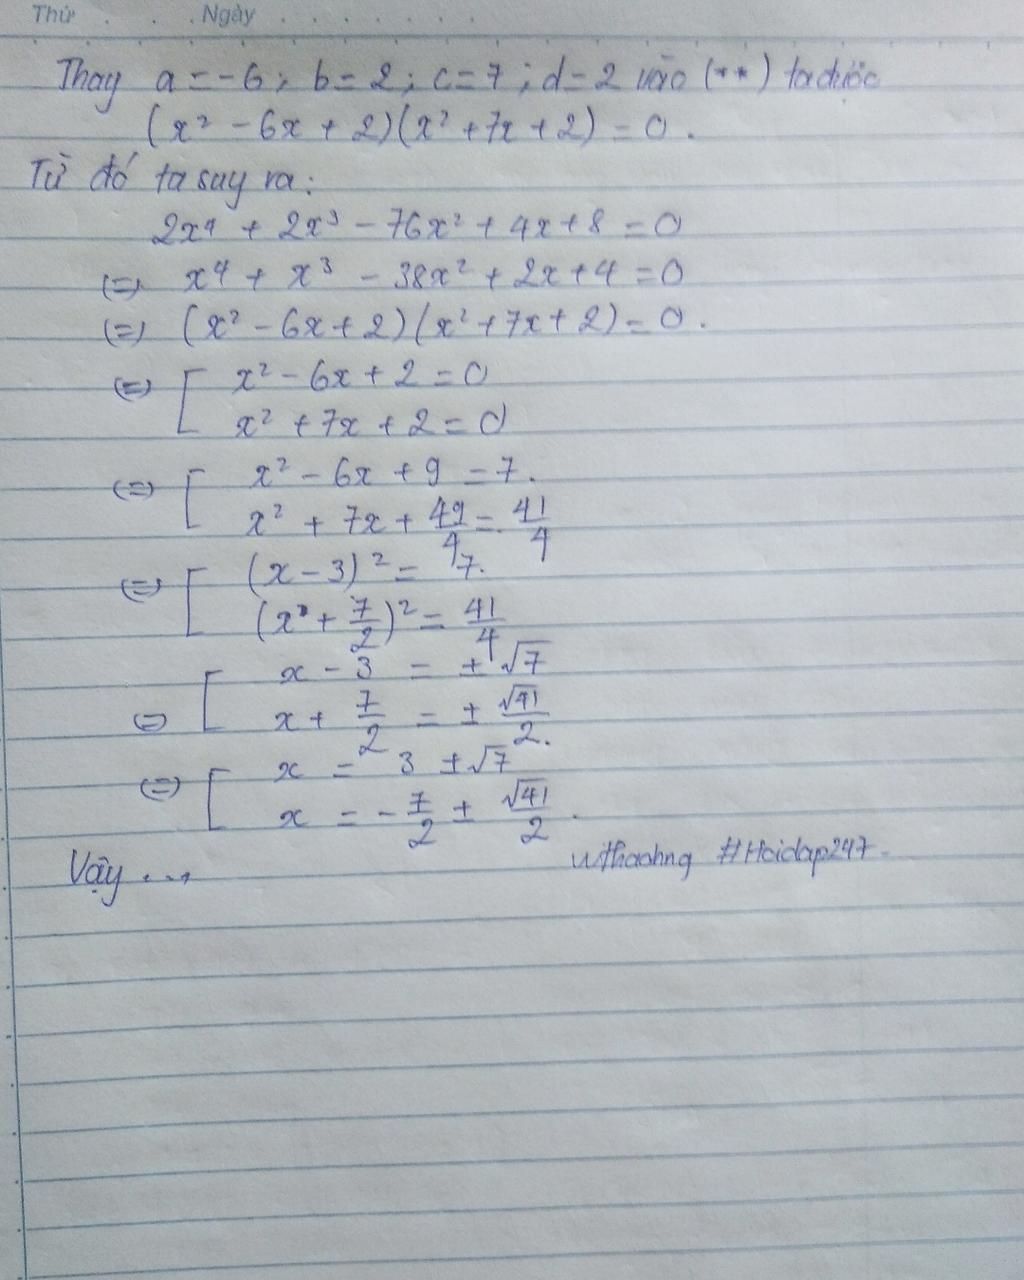 Thứ . . . Ngày . . . . . . . .
Thay a = -6 ; b = 2 ; c = 7 ; d = 2 vào (**) ta được
(x² - 6x + 2)(x² + 7x + 2) = 0 .
Từ đó ta suy ra :
2x⁴ + 2x³ - 76x² + 4x + 8 = 0
(=) x⁴ + x³ - 38x² + 2x + 4 = 0
(=) (x² - 6x + 2)(x² + 7x + 2) = 0 .
(=) [ x² - 6x + 2 = 0
x² + 7x + 2 = 0
(=) [ x² - 6x + 9 = 7 .
x² + 7x + 49/4 = 41/4
(=) [ (x - 3)² = 7 .
(x + 7/2)² = 41/4
(=) [ x - 3 = ± √7
x + 7/2 = ± √41/2 .
(=) [ x = 3 ± √7
x = - 7/2 ± √41/2 .
Vậy ...
#Hoidap247 .